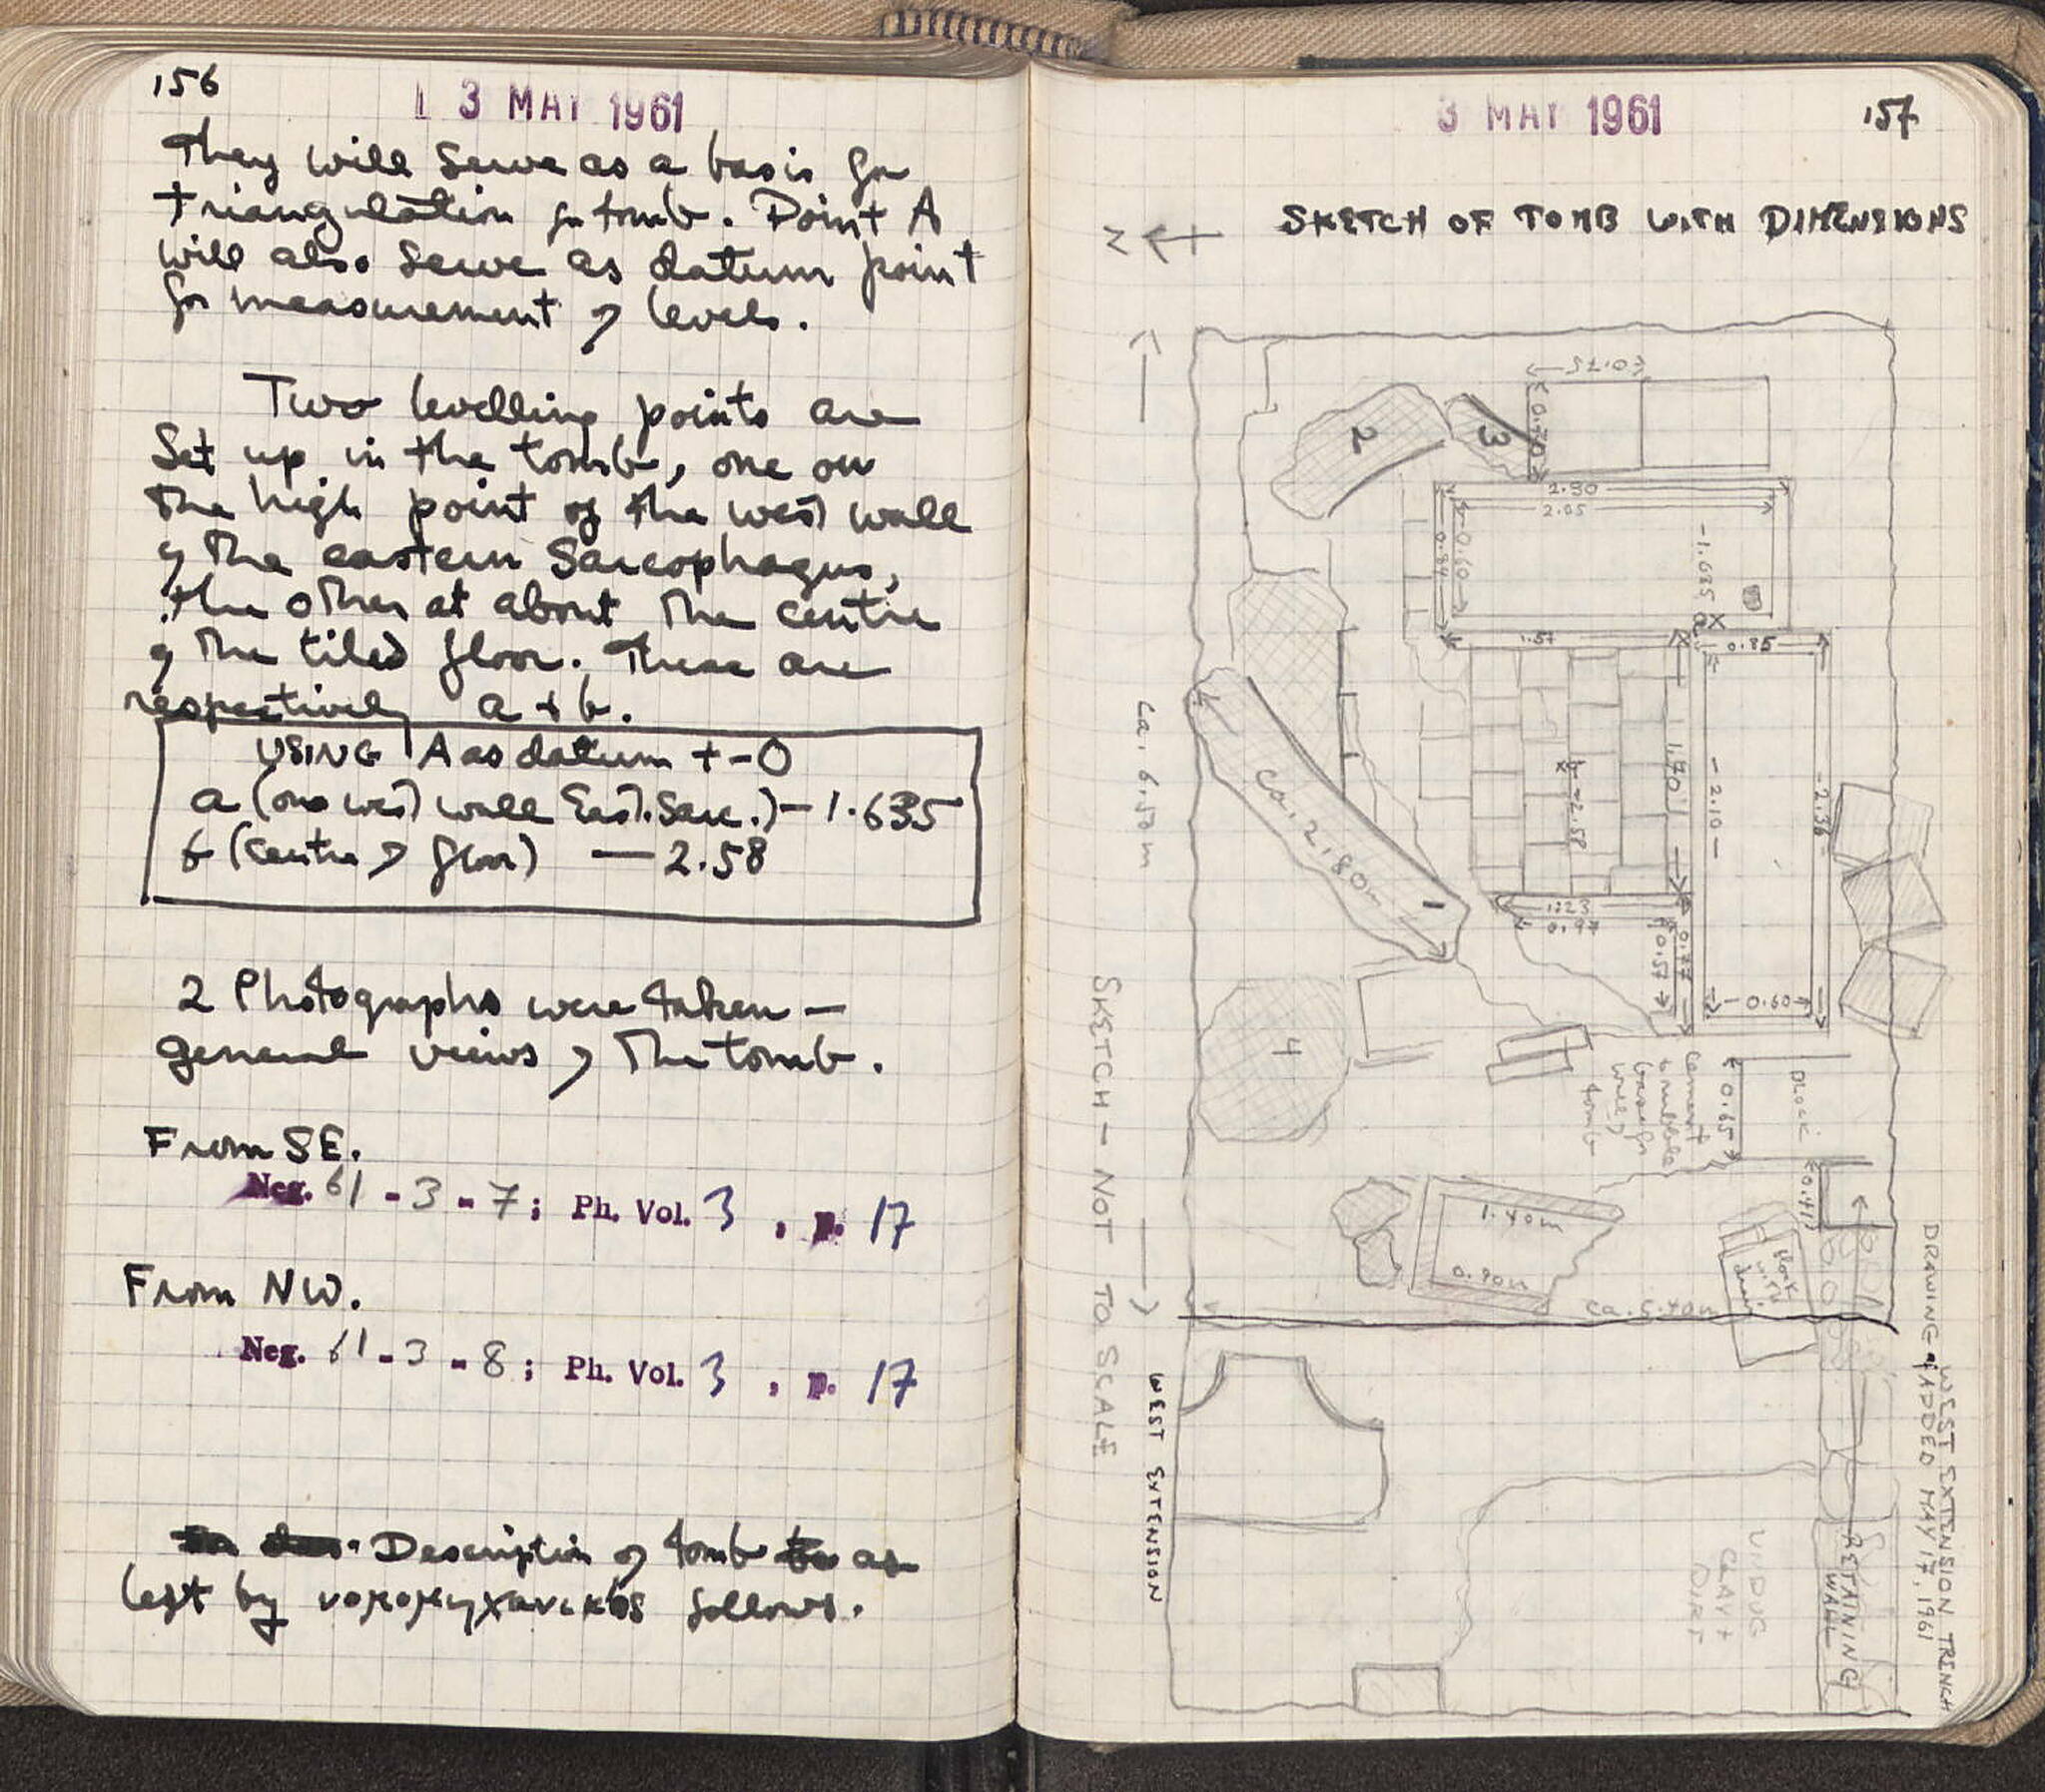 156
3 MAY 1961
They will serve as a basis for
triangulation for tomb. Point A
will also serve as datum point
for measurement of levels.
Two levelling points are
set up in the tomb, one on
the high point of the west wall
of the eastern Sarcophagus,
the other at about the centre
of the tiled floor. These are
respectively a + b.
USING A as datum +-0
a (on west wall East. Sarc.) - 1.635
b (centre of floor) - 2.58
2 Photographs were taken -
general views of the tomb.
From SE.
Neg. 61 - 3 - 7; Ph. Vol. 3, p. 17
From NW.
Neg. 61 - 3 - 8; Ph. Vol. 3, p. 17
Description of tomb as
left by νομομηχανικός follows.
3 MAY 1961
157
N
SKETCH OF TOMB WITH DIMENSIONS
0.75
0.70
2
3
2.30
2.05
0.84
0.60
-1.635
a X
1.57
0.85
1.70
b -2.58
- 2.10 -
- 2.36 -
ca. 6.50 m
ca. 2.80m
1
1.23
0.97
0.57
0.77
0.60
4
cement
+ rubble
base for
wall of
tomb
0.65
BLOCK
0.41
1.40m
0.90m
block
with
drain
ca. 5.70m
SKETCH - NOT TO SCALE
WEST EXTENSION
UNDUG
CLAY +
DIRT
RETAINING
WALL
DRAWING of WEST EXTENSION TRENCH
ADDED MAY 17, 1961